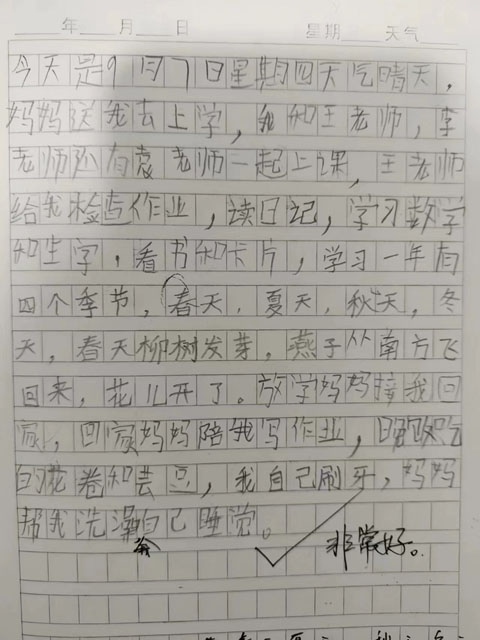 年 月 日 星期 天气
今天是9月7日星期四天气晴天，
妈妈送我去上学，我和王老师，李
老师还有袁老师一起上课，王老师
给我检查作业，读日记，学习数学
和生字，看书和卡片，学习一年有
四个季节，春天，夏天，秋天，冬
天，春天柳树发芽，燕子从南方飞
回来，花儿开了。放学妈妈接我回
家，回家妈妈陪我写作业，晚饭吃
的花卷和芸豆，我自己刷牙，妈妈
帮我洗澡自己睡觉。
非常好。